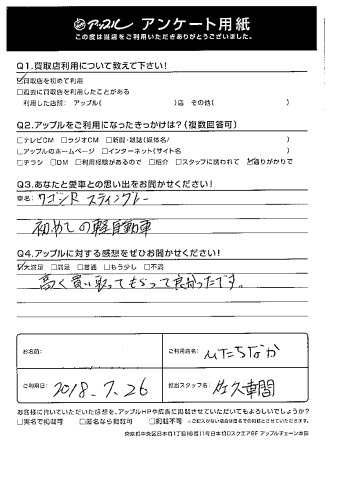 アップル アンケート用紙
この度は当店をご利用いただきありがとうございました。
Q1.買取店利用について教えて下さい!
☑買取店を初めて利用
□過去に買取店を利用したことがある
利用した店舗: アップル( )店 その他( )
Q2.アップルをご利用になったきっかけは?(複数回答可)
□テレビCM □ラジオCM □新聞・雑誌(媒体名 )
□アップルのホームページ □インターネット(サイト名 )
□チラシ □DM □利用経験があるので □紹介 □スタッフに誘われて ☑通りがかりで
Q3.あなたと愛車との思い出をお聞かせください!
車名: ワゴンR スティングレー
初めての軽自動車
Q4.アップルに対する感想をぜひお聞かせください!
☑大満足 □満足 □普通 □もう少し □不満
高く買い取ってもらって良かったです。
お名前:
ご利用店名:
ご利用日: 2018.7.26
担当スタッフ名: 佐久間
お客様に書いていただいた感想を、アップルHPや広告に掲載させていただいてもよろしいでしょうか?
□実名で掲載可 □匿名なら掲載可 □掲載不可 ※ご記入がない場合は匿名での掲載とさせていただきます。
東京都中央区日本橋1丁目16番11号日本橋Dスクエア9F アップルチェーン本部